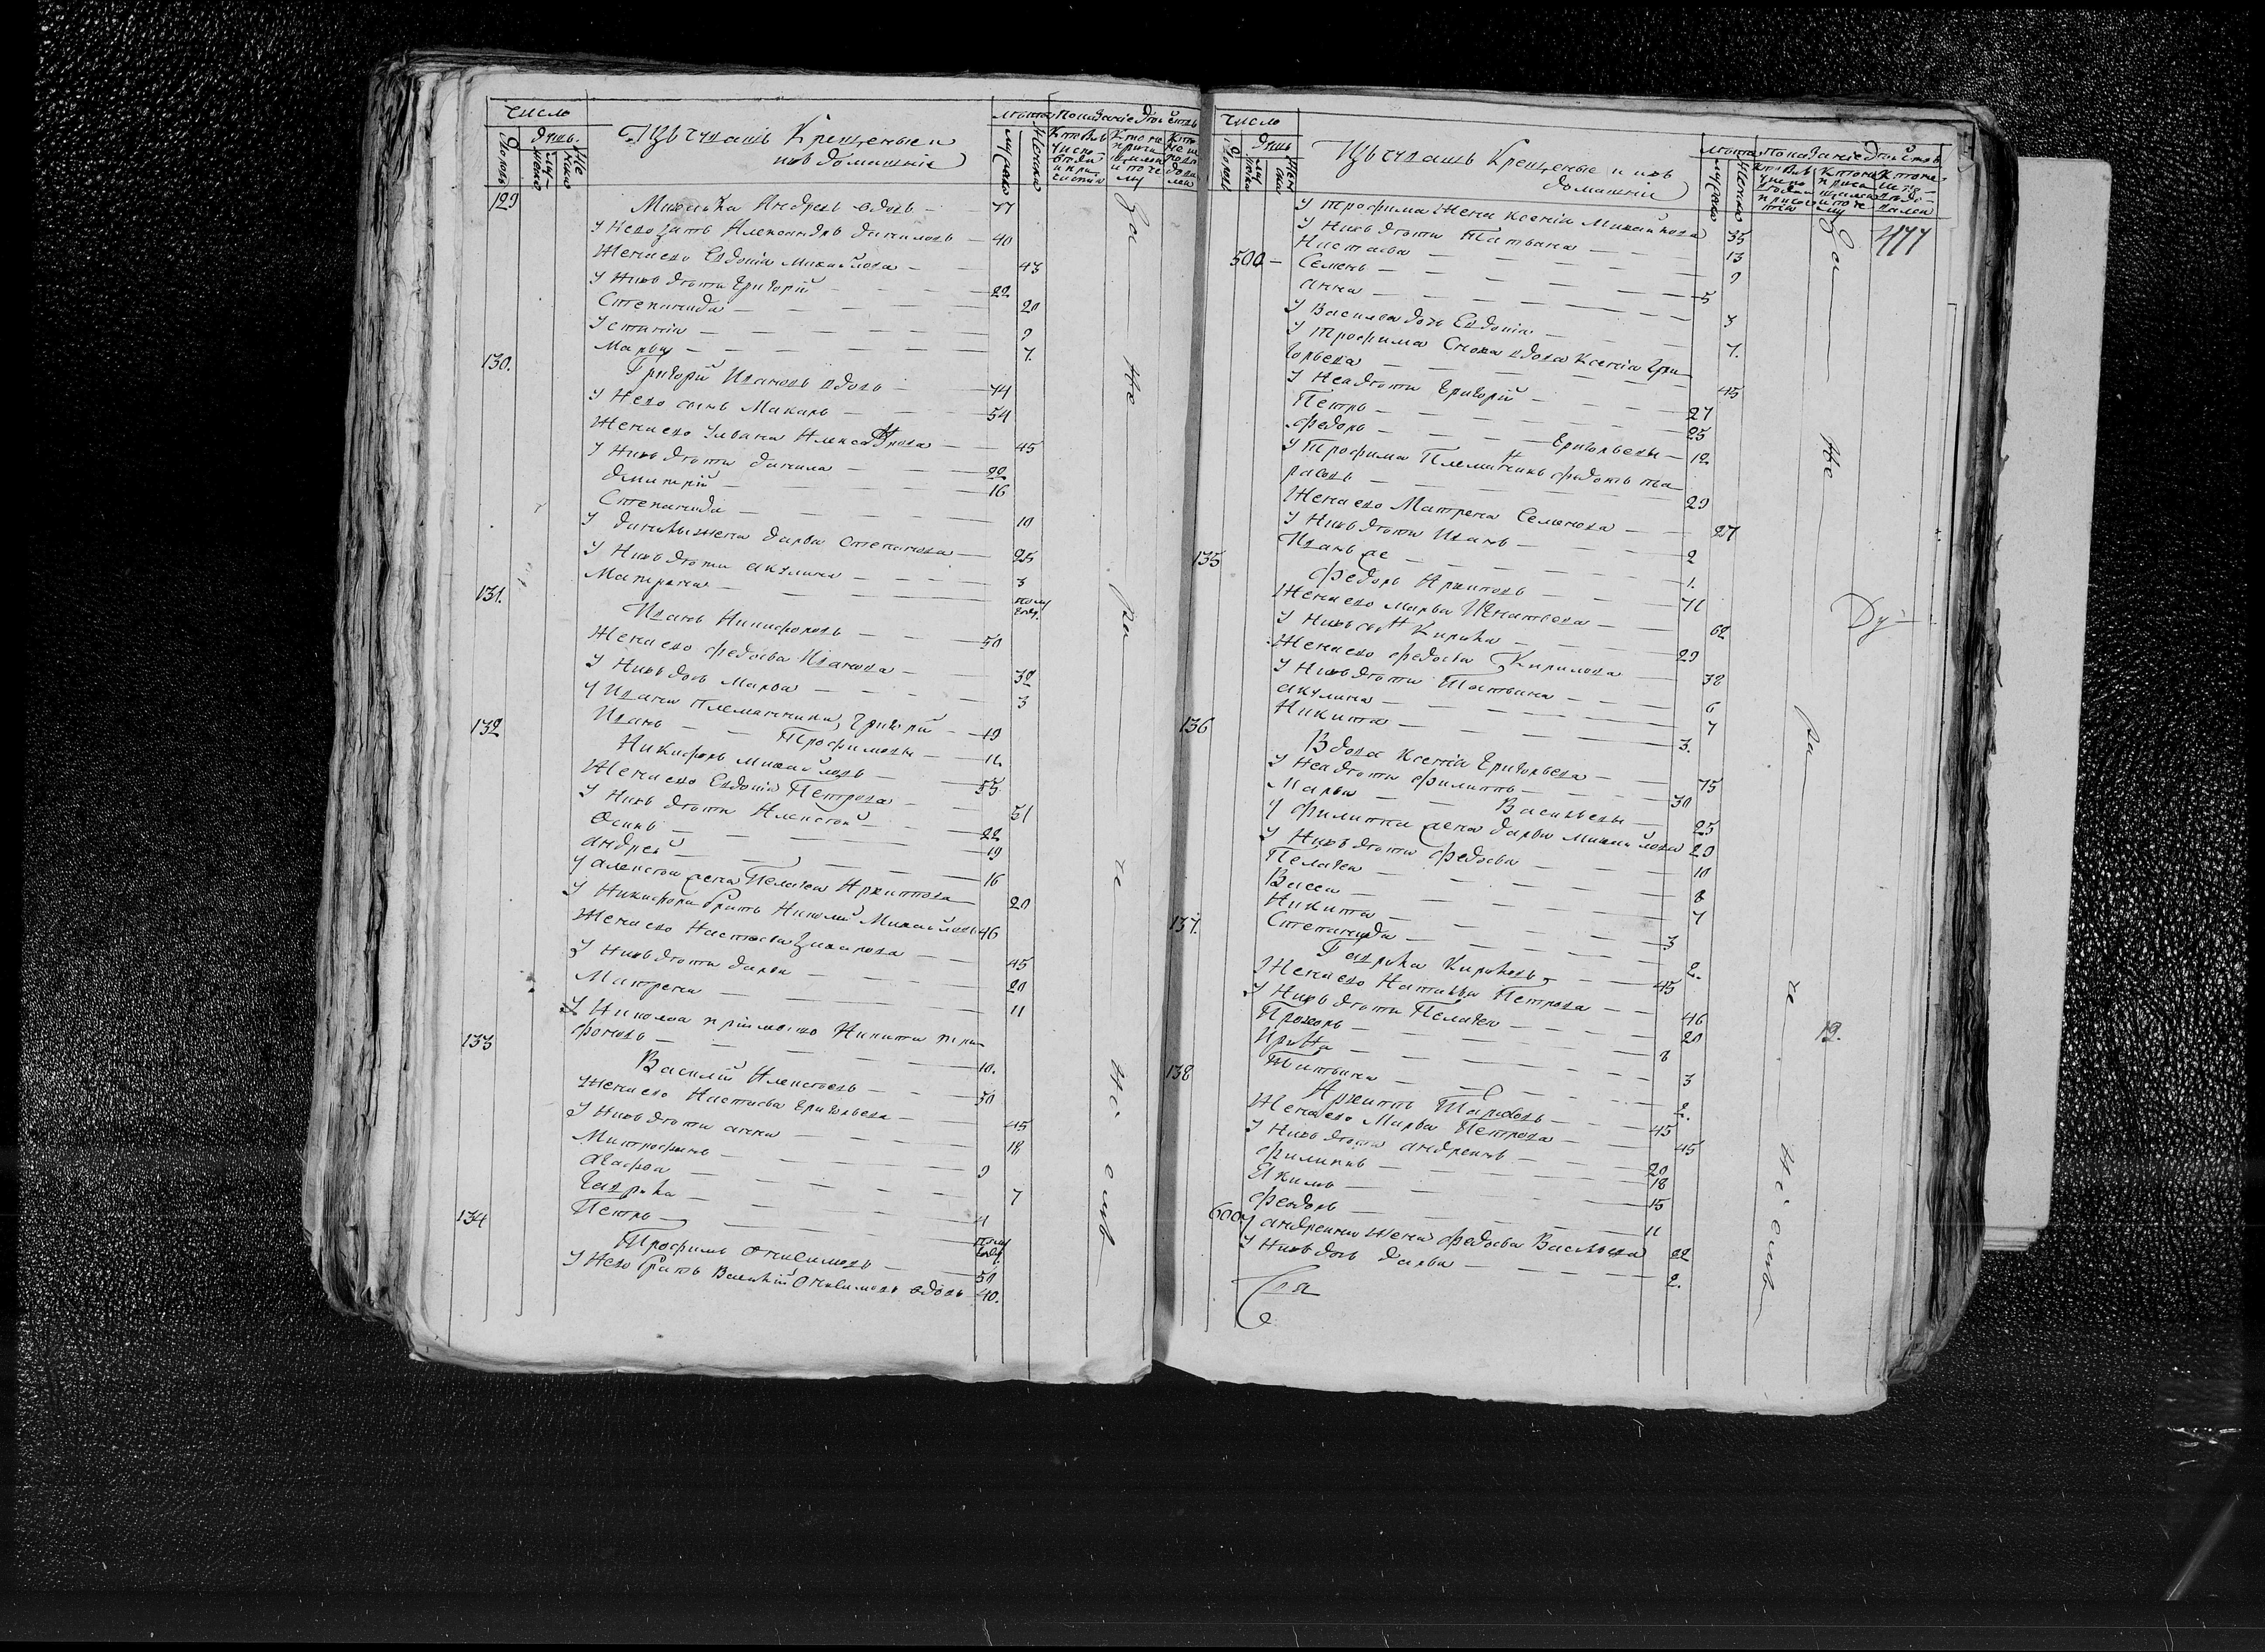 число
Домовъ
душъ
муже
Же
Изъ чувашъ Крещеные и
ихъ домашніи
Лѣта
мужеска
Женска
129 Андрей вдовъ — 77
У Него зять Александръ Даниловъ — 40
Жена ево Евдокія Михайлова — 43
У Нихъ дѣти Григорій — 22
Степанида — 20
Устинія — 9
Марья — 7.
130. Григорій Ивановъ вдовъ — 74
У Него сынъ Макаръ — 54
Жена ево Ульяна — 45
У Нихъ дѣти Данила — 22
Дмитрій — 16
Степанида — 10
У Данилы жена Дарья Степанова — 25
У Нихъ дѣти Акулина — 3
Матрена — полугоду.
131. Иванъ Никифоровъ — 50
Жена ево Федосья Иванова — 32
У Нихъ дочь Марѳа — 3
У Ивана племянники, Григорій — 19
Иванъ — Трофимовы — 12
132 Никифоръ Михайловъ — 55
Жена ево Евдокія Петрова — 51
У Нихъ дѣти Алексѣй — 22
Осипъ — 19
Андрей — 16
У Алексѣя жена Пелагея Архипова — 20
У Никифора братъ Николай Михайловъ 46
Жена ево Настасья Захарова — 45
У Нихъ дѣти Дарья — 20
Матрена — 11
У Николая Никита
фоновъ — 10.
133 Василій Алексѣевъ — 50
Жена ево Настасья Григорьева — 45
У Нихъ дѣти Анна — 18
Митрофанъ — 9
Агафья — 7
Гаврила — 4
Петръ — полугоду
134 Трофимъ — 50
У Него братъ Василій вдовъ — 40.
За
не
ра
че
ні
емъ
число
Домовъ
душъ
Изъ чувашъ Крещеные и ихъ
домашніи
Лѣта
мужеска
Женска
477
У Трофима Жена Ксенія Михайлова 35
У Нихъ дѣти Татьяна — 13
Настасья — 9
500 — Семенъ — 5
Анна — 3
У Василья дочь Евдокія — 7.
У Трофима Сноха вдова Ксенія Гри
горьева — 45
У Нея дѣти Григорій — 27
Петръ — 25
Федоръ — Григорьевы — 12
У Трофима Племянникъ Федотъ Та
расовъ — 29
Жена ево Матрена Семенова — 27
У Нихъ дѣти Иванъ — 2
Иванъ же — 1.
135 Федоръ Архиповъ — 71
Жена ево Марья Игнатьева — 62
У Нихъ сынъ Кирила — 29
Жена ево Федосья Кирилова — 38
У Нихъ дѣти Татьяна — 6
Акулина — 7
Никита — 3.
136 Вдова Ксенія Григорьева — 75
У Нея дѣти Филиппъ — 30
Марья — Васильевы — 25
У Филиппа жена Дарья Михайлова 29
У Нихъ дѣти Федосья — 10
Пелагея — 8
Васса — 7
Никита — 3
Степанида — 2.
137. Гаврила Кириловъ — 45
Жена ево Наталья Петрова — 46
У Нихъ дѣти Пелагея — 20
Прохоръ — 8
Ирина — 3
Татьяна — 2.
138 Архипъ Тарасовъ — 45
Жена ево Марья Петрова — 45
У Нихъ дѣти Андреянъ — 20
Филипъ — 18
Якимъ — 15
Феодоръ — 11
600 У Андреяна Жена Федосья Васильева 22
У Нихъ дочь Дарья — 2.
За
не
ра
че
ні
емъ
Ду
12.